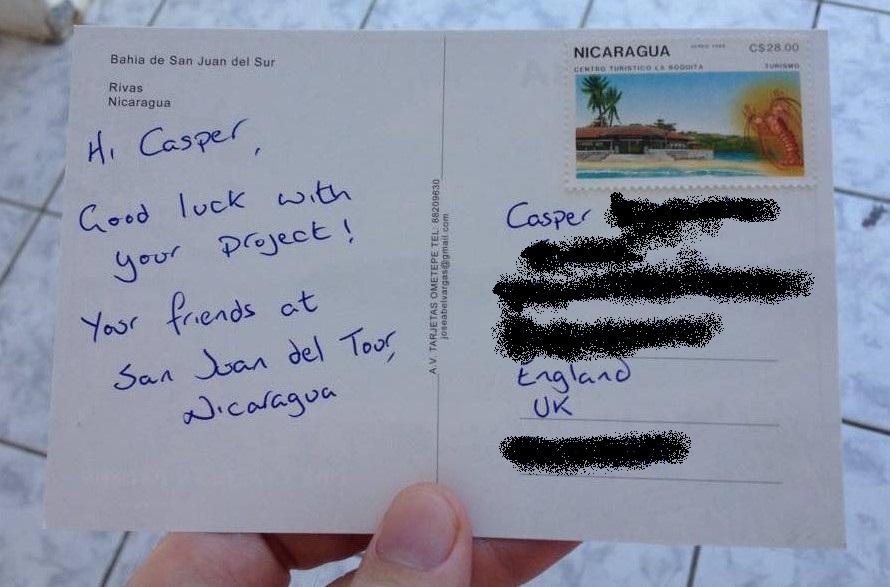 Bahia de San Juan del Sur
Rivas
Nicaragua
Hi Casper,
Good luck with
your project!
Your friends at
San Juan del Tour,
Nicaragua
A.V. TARJETAS OMETEPE TEL. 88209630
joseabelvargas@gmail.com
NICARAGUA C$28.00
CENTRO TURISTICO LA BOQUITA TURISMO
Casper
England
UK